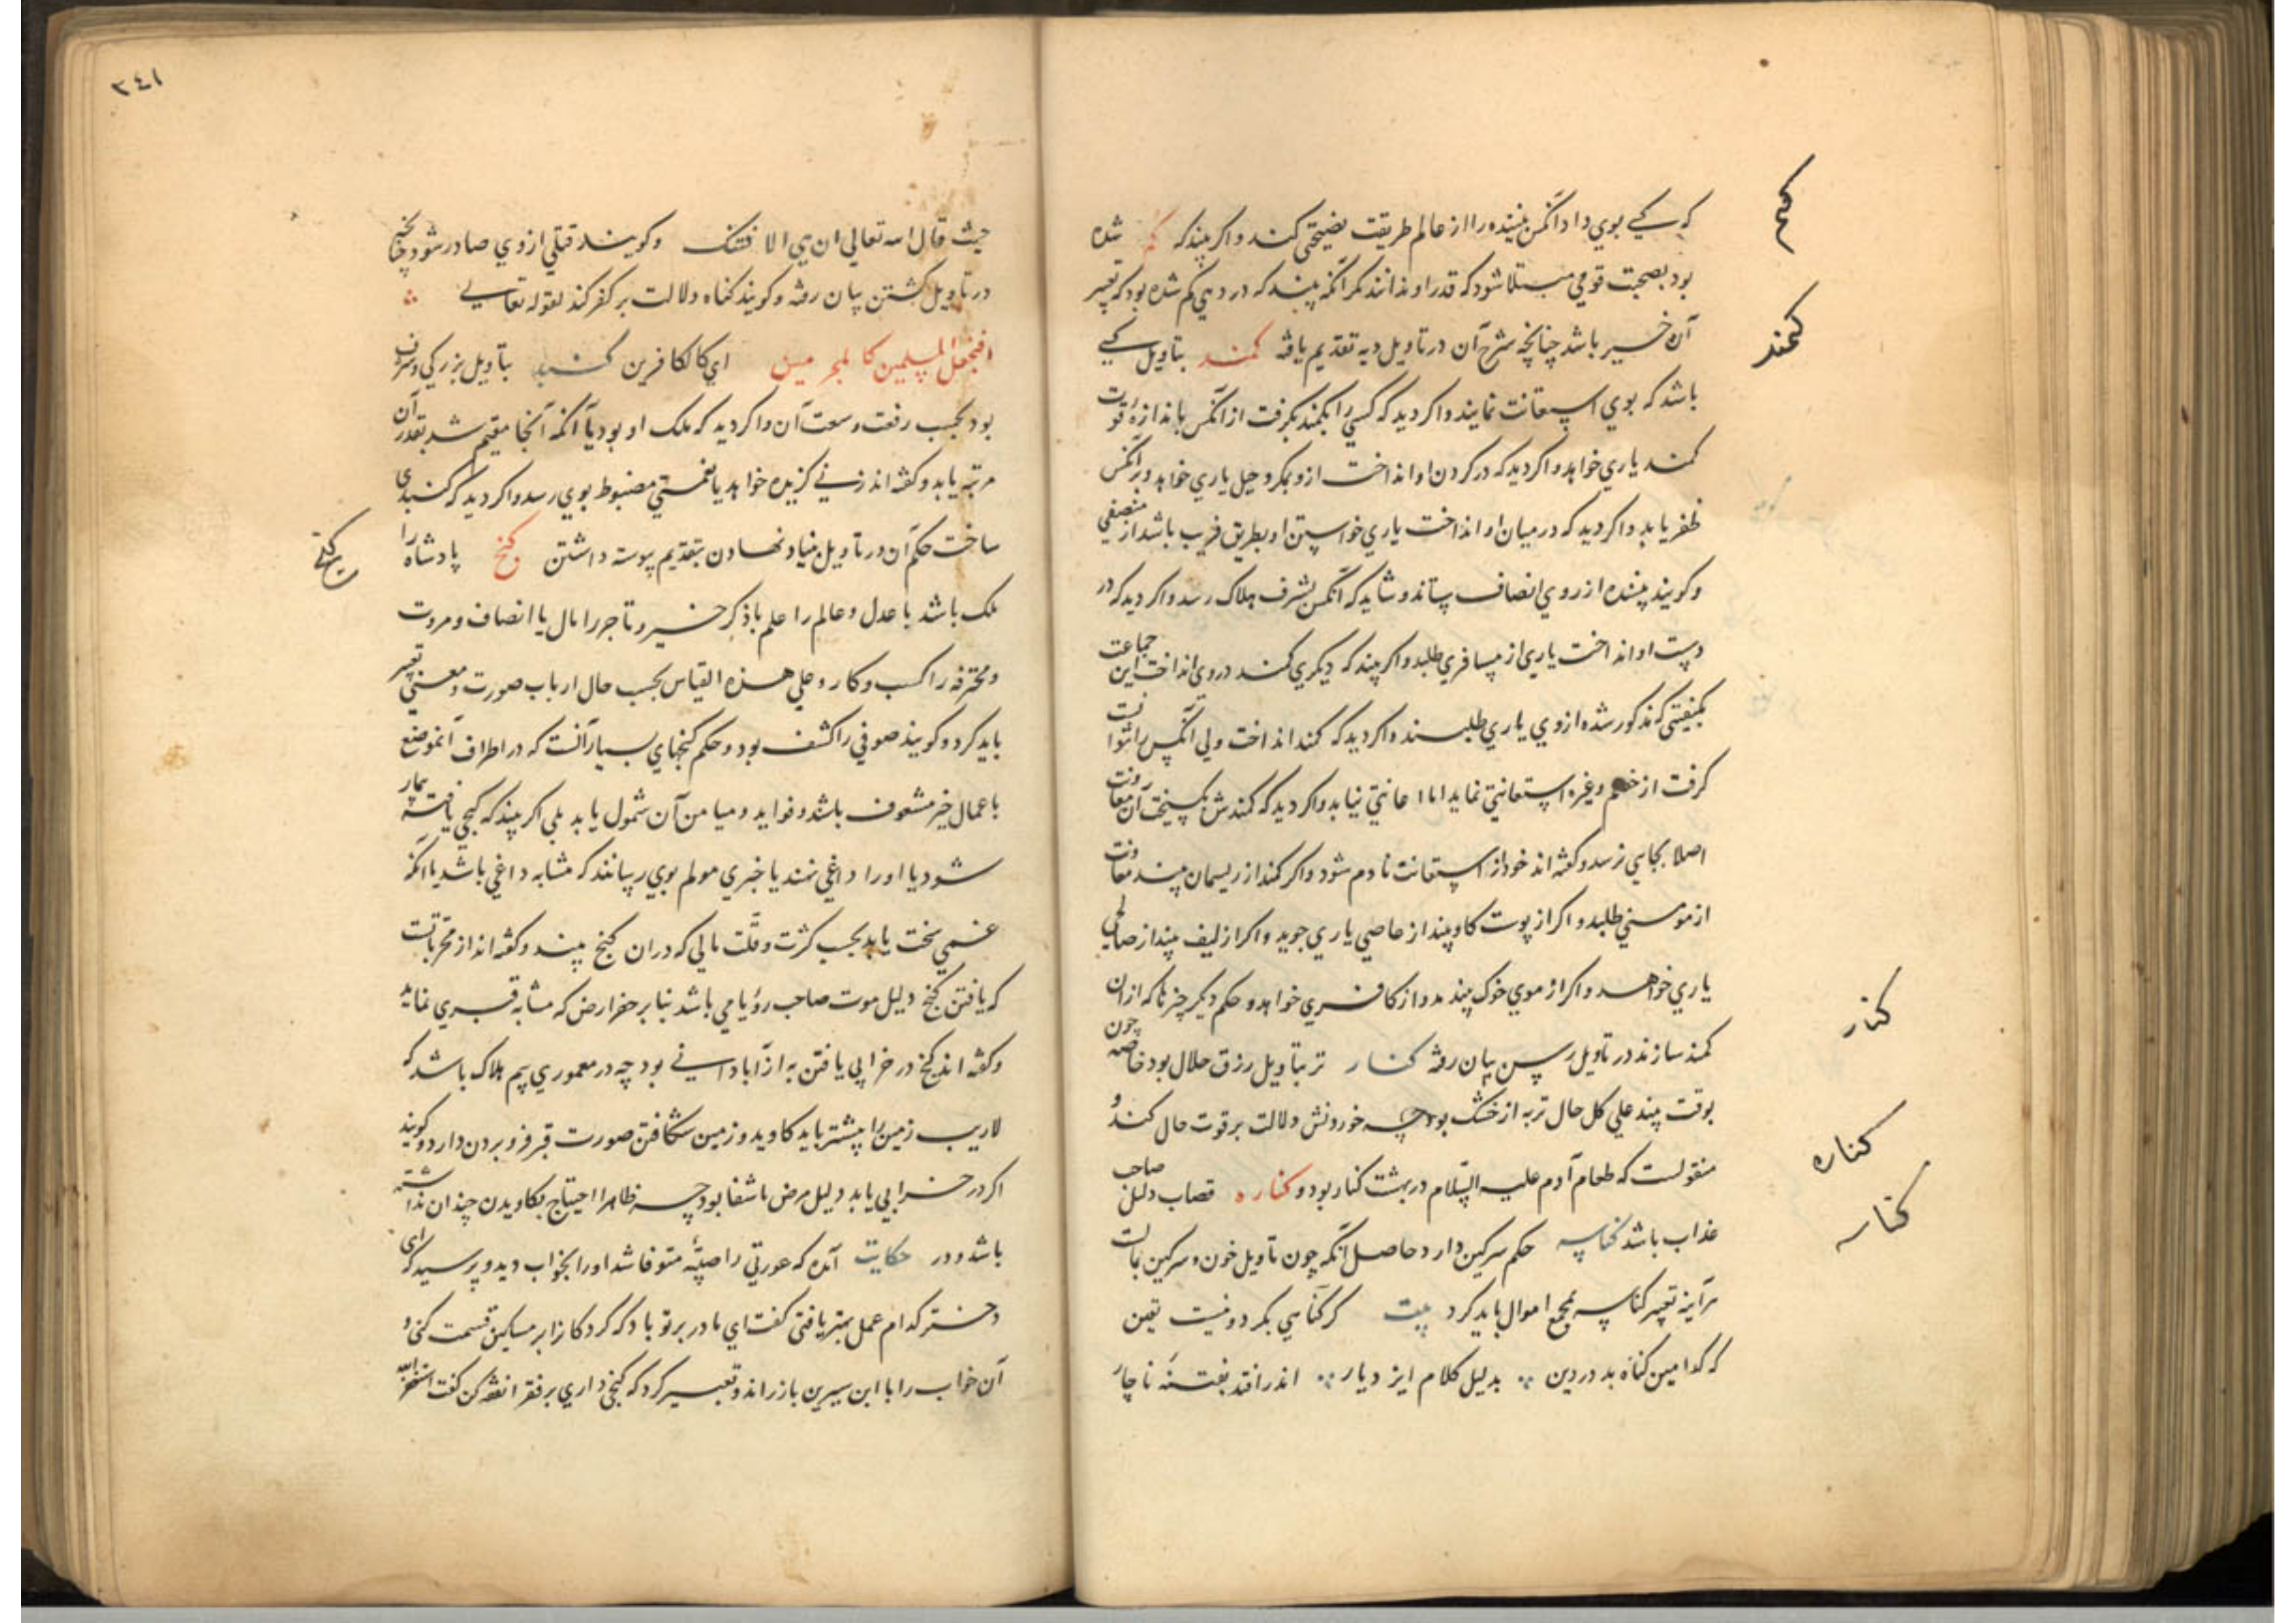 که کسی بوی داد آنکس بیننده را از عالم طریقت نصیحتی کند و اکر بیند که کم شده
کم
بود بصحبت قومی مبتلا شود که قدر او ندانند مکر آنکه بیند که در دهی کم شده بود که تعبیر
آن خیر باشد چنانچه شرح آن در تاویل دیه تقدیم یافه کمند بتاویل کسی
کمند
باشد که بوی استعانت نمایند و اکر دید که کسی را بکمند بکرفت از آنکس باندازه قوت
کمند یاری خواهد و اکر دید که در کردن او انداخت ازو بمکر و حیل یاری خواهد و بر آنکس
ظفر یابد و اکر دید که در میان او انداخت یاری خواستن او بطریق فریب باشد از منصفی
و کویند بیننده از روی انصاف ستاند و شاید که آنکس بشرف هلاک رسد و اکر دید که در
دست او انداخت یاری از مسافری طلبد و اکر بیند که دیکری کمند در وی انداخت این جماعت
بکیفیتی که مذکور شده از وی یاری طلبند و اکر دید که کمند انداخت ولی آنکس را نتوانست
کرفت از خصم و غیره استعانتی نماید اما اعانتی نیابد و اکر دید که کمندش بکسیخت آن معاونت
اصلا بجایی نرسد و کفته اند خود از استعانت نادم شود و اکر کمند از ریسمان بیند معاونت
از مومنی طلبد و اکر از پوست کاو بیند از عاصی یاری جوید و اکر از لیف بیند از صالحی
یاری خواهد و اکر از موی خوک بیند مدد از کافری خواهد و حکم دیکر چیزها که از آن
کمند سازند در تاویل رسن بیان رفه کنار تر بتاویل رزق حلال بود خاصه چون
کنار
بوقت بیند علی کل حال تر به از خشک بود چه خوردنش دلالت بر قوت حال کند و
منقولست که طعام آدم علیه السلام در بهشت کنار بود و کناره قصاب دلیل صاحب
کناره
عذاب باشد کناسه حکم سرکین دارد حاصل آنکه چون تاویل خون و سرکین بمالست
کناسه
هر آینه تعبیر کناسه بجمع اموال باید کرد بیت کر کناهی بکرد و نیست یقین
که کدامین کناه بد در دین بدلیل کلام ایزد یار اندر افتد بفتنه ناچار
٢٤١
حیث قال الله تعالی ان هی الا فتنتک و کویند قتلی از وی صادر شود چنانچه
در تاویل کشتن بیان رفه و کویند کناه دلالت بر کفر کند لقوله تعالی
افنجعل المسلمین کالمجرمین ای کالکافرین کنبد بتاویل بزرکی و شرف
بود بحسب رفعت و سعت آن و اکر دید که ملک او بود یا آنکه آنجا مقیم شد بقدر آن
مرتبه یابد و کفته اند زنی کزیده خواهد یا نعمتی مضبوط بوی رسد و اکر دید که کنبدی
ساخت حکم آن در تاویل بنیاد نهادن بتقدیم پیوسته داشتن کنج پادشاه را
کنج
ملک باشد با عدل و عالم را علم با ذکر خیر و تاجر را مال با انصاف و مروت
و محترفه را کسب و کار و علی هذه القیاس بحسب حال ارباب صورت و معنی تعبیر
باید کرد و کویند صوفی را کشف بود و حکم کنجهای بسیار آنست که در اطراف آنموضع
باعمال خیر مشعوف باشند و فواید و میامن آن شمول یابد بلی اکر بیند که کنجی یافت بیمار
شود یا او را داغی نهند یا خبری مولم بوی رسانند که مشابه داغی باشد یا آنکه
غمی سخت یابد بحسب کثرت و قلت مالی که در ان کنج بیند و کفته اند از مجرباتست
که یافتن کنج دلیل موت صاحب رؤیا می باشد بنابر حفر ارض که مشابه قبری نماید
و کفته اند کنج در خرابی یافتن به از آبادانی بود چه در معموری بیم هلاک باشد که
لاریب زمین را بیشتر باید کاوید و زمین شکافتن صورت قبر فرو بردن دارد و کویند
اکر در خرابی یابد دلیل مرض با شفا بود چه ظاهرا احتیاج بکاویدن چندان نداشته
باشد و در حکایت آمده که عورتی را صبیّه متوفا شد او را بخواب دید و پرسید که ای
دختر کدام عمل بهتر یافتی کفت ای مادر بر تو باد که کردکانرا بر مساکین قسمت کنی و
آن خواب را با ابن سیرین باز راند و تعبیر کرد که کنجی داری بر فقرا نفقه کن کفت استغفر الله